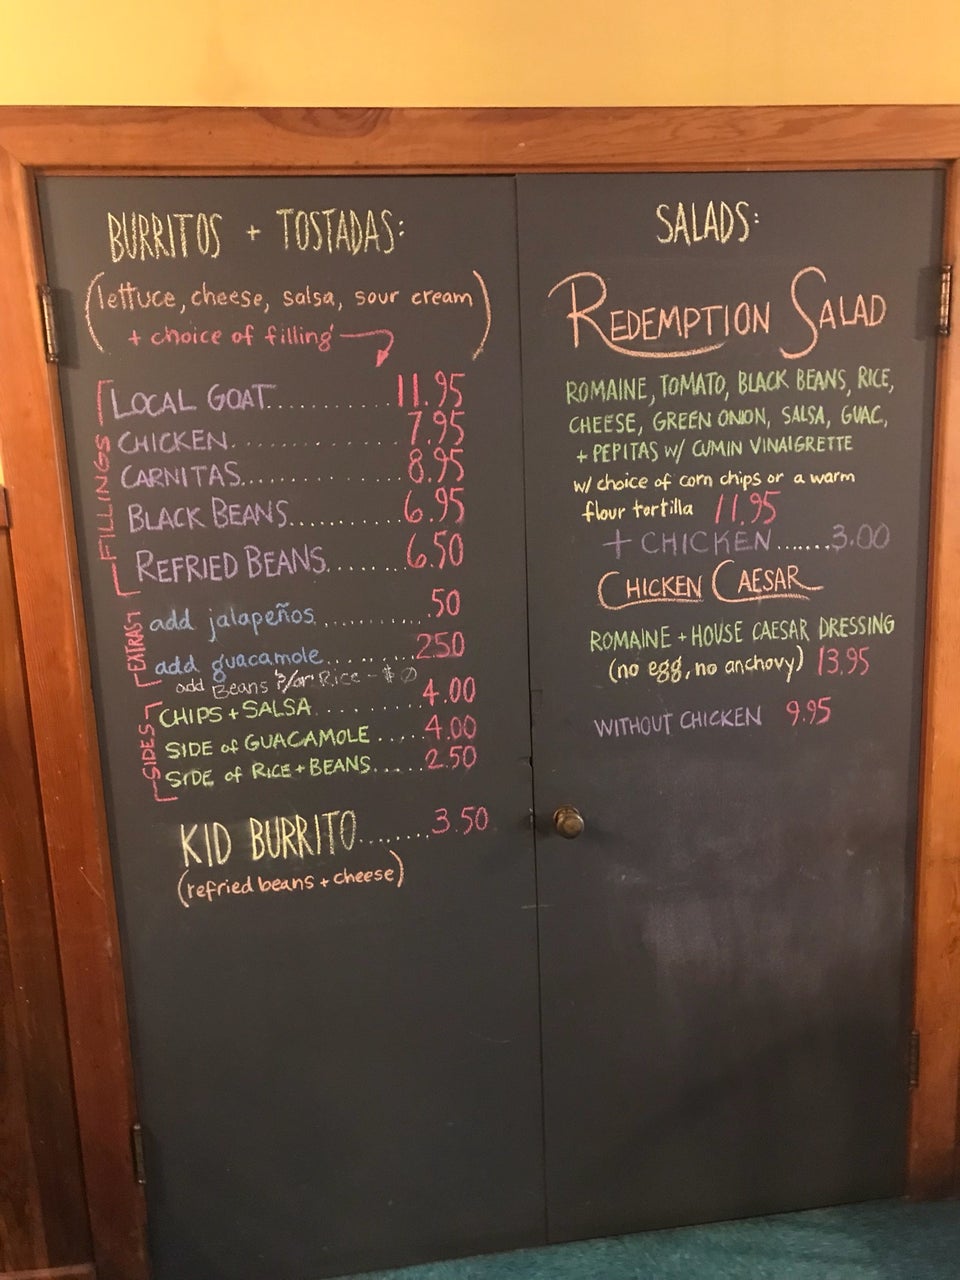 BURRITOS + TOSTADAS:
(lettuce, cheese, salsa, sour cream
+ choice of filling)
FILLINGS
LOCAL GOAT............11.95
CHICKEN...............7.95
CARNITAS..............8.95
BLACK BEANS...........6.95
REFRIED BEANS.........6.50
EXTRAS
add jalapeños.........50
add guacamole.........2.50
add Beans &/or Rice - $0
SIDES
CHIPS + SALSA.........4.00
SIDE of GUACAMOLE.....4.00
SIDE of RICE + BEANS.....2.50
KID BURRITO.......3.50
(refried beans + cheese)
SALADS:
REDEMPTION SALAD
ROMAINE, TOMATO, BLACK BEANS, RICE,
CHEESE, GREEN ONION, SALSA, GUAC,
+ PEPITAS W/ CUMIN VINAIGRETTE
w/ choice of corn chips or a warm
flour tortilla 11.95
+ CHICKEN.......3.00
CHICKEN CAESAR
ROMAINE + HOUSE CAESAR DRESSING
(no egg, no anchovy) 13.95
WITHOUT CHICKEN 9.95